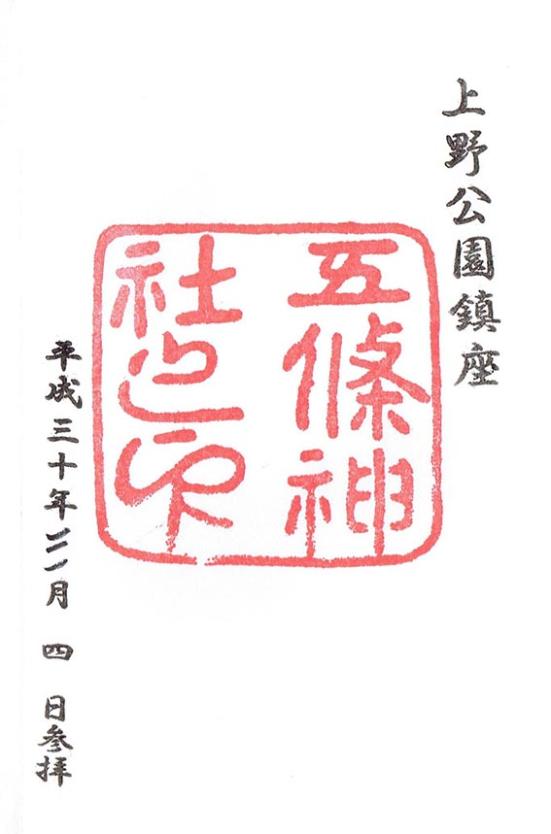 上野公園鎮座
五條神
社之印
平成三十年三月 四 日参拝